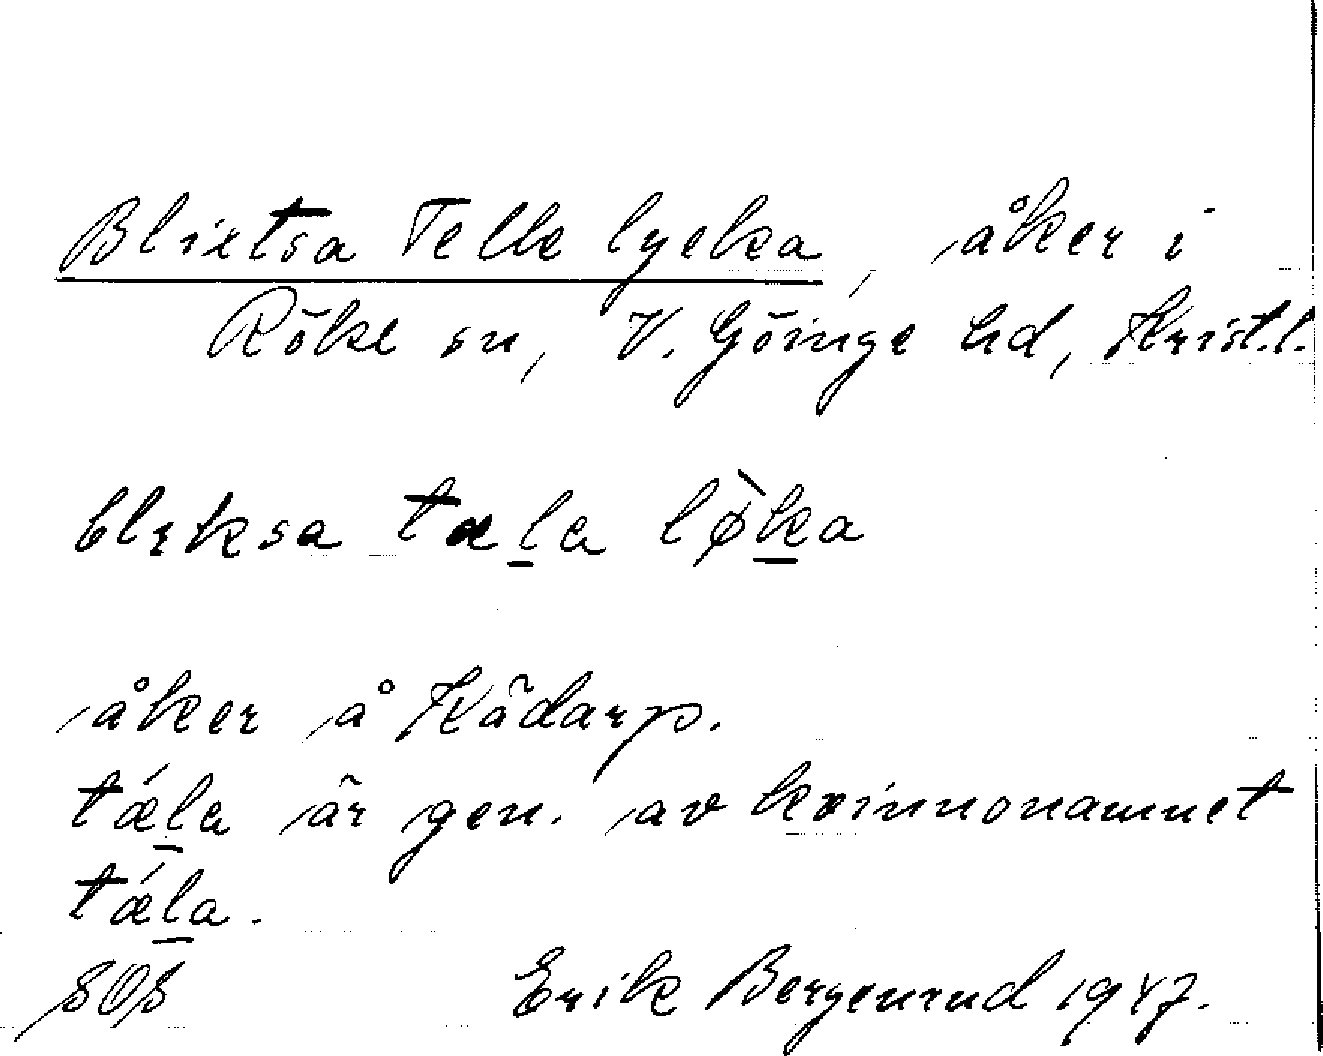 Blixtsa Telle lycka, åker i
Röke sn, V. Göinge hd, Krist.l.
blɪksa tæl̲ə lø̀k̲a
åker å Kådarp.
tǽl̲ə är gen. av kvinnonamnet
tǽl̲a.
SOS Erik Bergenrud 1947.